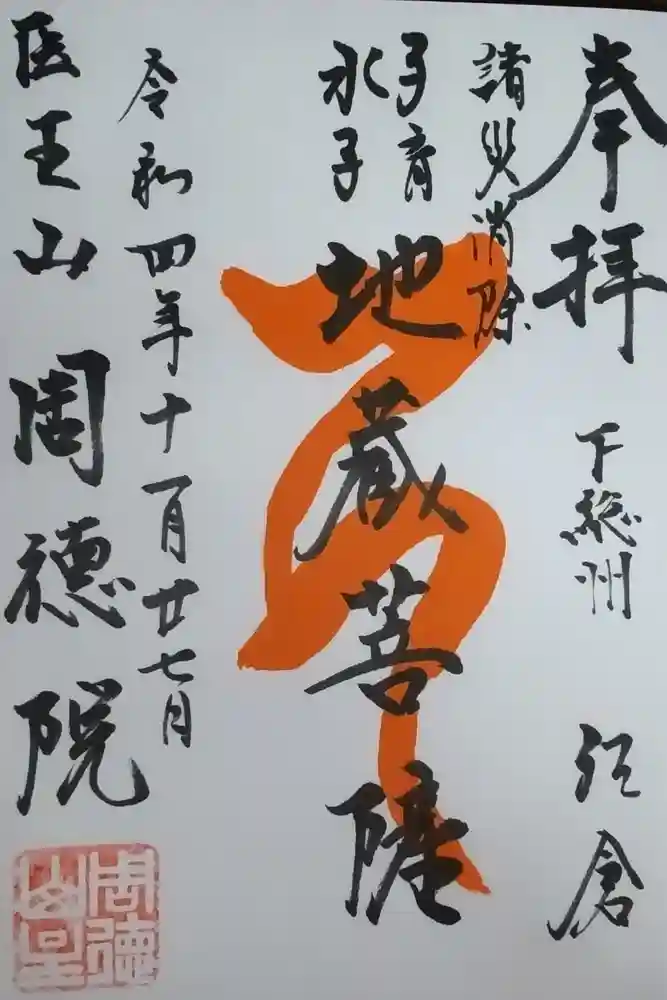 奉拝 下総州 倉
諸災消除
子育
水子
地蔵菩薩
令和四年十一月廿七日
医王山 周徳院
周徳